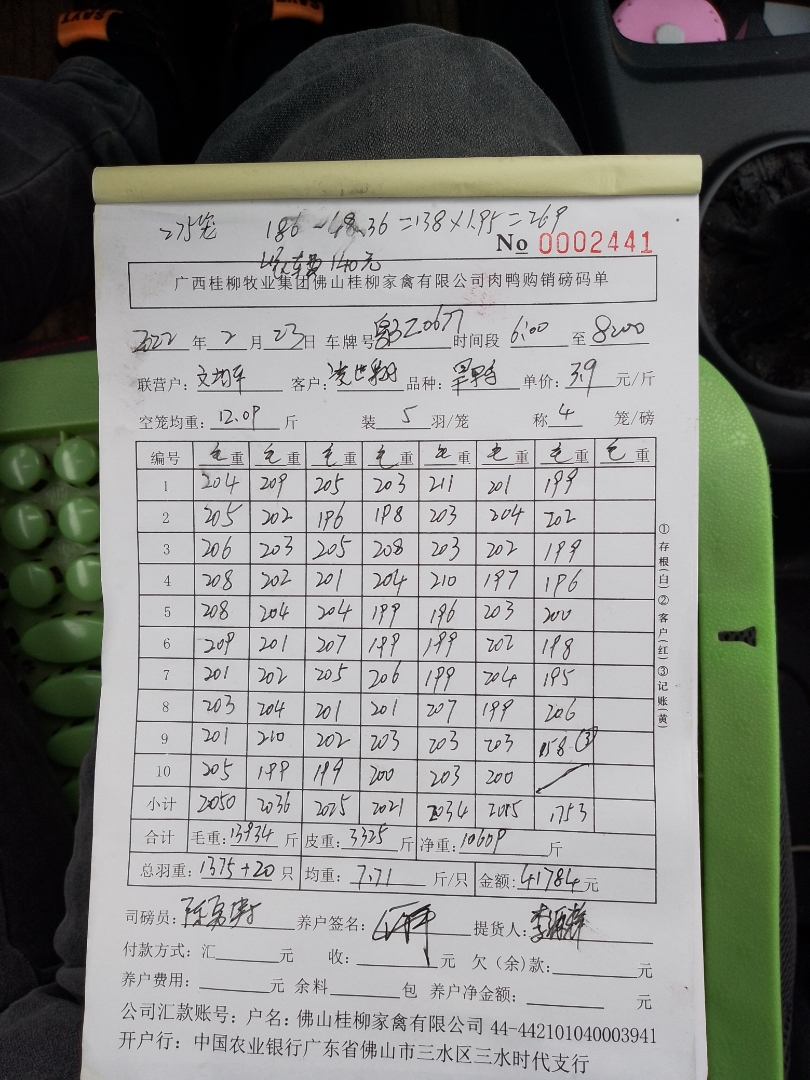 275笼 186-48.36=138×1.95=269
No 0002441
收车费140元
广西桂柳牧业集团佛山桂柳家禽有限公司肉鸭购销磅码单
2022年2月23日 车牌号 时间段 6:00 至 8:00
联营户: 客户: 品种: 单价: 3.9 元/斤
空笼均重: 12.09 斤 装 5 羽/笼 称 4 笼/磅
编号 毛重 毛重 毛重 毛重 毛重 毛重 毛重 毛重
1 204 209 205 203 211 201 199
2 205 202 196 198 203 204 202
3 206 203 205 208 203 202 199
4 208 202 201 204 210 197 196
5 208 204 204 199 196 203 200
6 209 201 207 199 199 202 198
7 201 202 205 206 199 204 195
8 203 204 201 201 207 199 206
9 201 210 202 203 203 203 158 (3)
10 205 199 199 200 203 200
小计 2050 2036 2025 2021 2034 2015 1753
合计 毛重: 13934 斤 皮重: 3325 斤 净重: 10609 斤
总羽重: 1375+20 只 均重: 7.71 斤/只 金额: 41784 元
司磅员: 养户签名: 提货人:
付款方式: 汇 元 收: 元 欠(余)款: 元
养户费用: 元 余料 包 养户净金额: 元
公司汇款账号: 户名: 佛山桂柳家禽有限公司 44-442101040003941
开户行: 中国农业银行广东省佛山市三水区三水时代支行
①存根(白)②客户(红)③记账(黄)